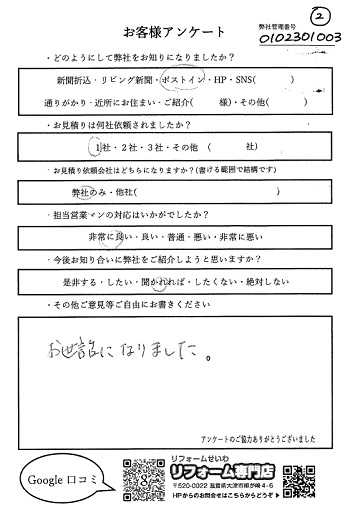 お客様アンケート
弊社管理番号
②
0102301003
・どのようにして弊社をお知りになりましたか？
新聞折込・リビング新聞・ポストイン・HP・SNS(　　　)
通りがかり・近所にお住まい・ご紹介(　　様)・その他(　　)
・お見積りは何社依頼されましたか？
1社・2社・3社・その他　(　　　社)
・お見積り依頼会社はどちらになりますか？(書ける範囲で結構です)
弊社のみ・他社(　　　)
・担当営業マンの対応はいかがでしたか？
非常に良い・良い・普通・悪い・非常に悪い
・今後お知り合いに弊社をご紹介しようと思いますか？
是非する・したい・聞かれれば・したくない・絶対しない
・その他ご意見等ご自由にお書きください
お世話になりました。
アンケートのご協力ありがとうございました
Google 口コミ
リフォームせいわ
リフォーム専門店
〒520-0022 滋賀県大津市柳が崎4-6
HPからのお問合せはこちらからどうぞ▶